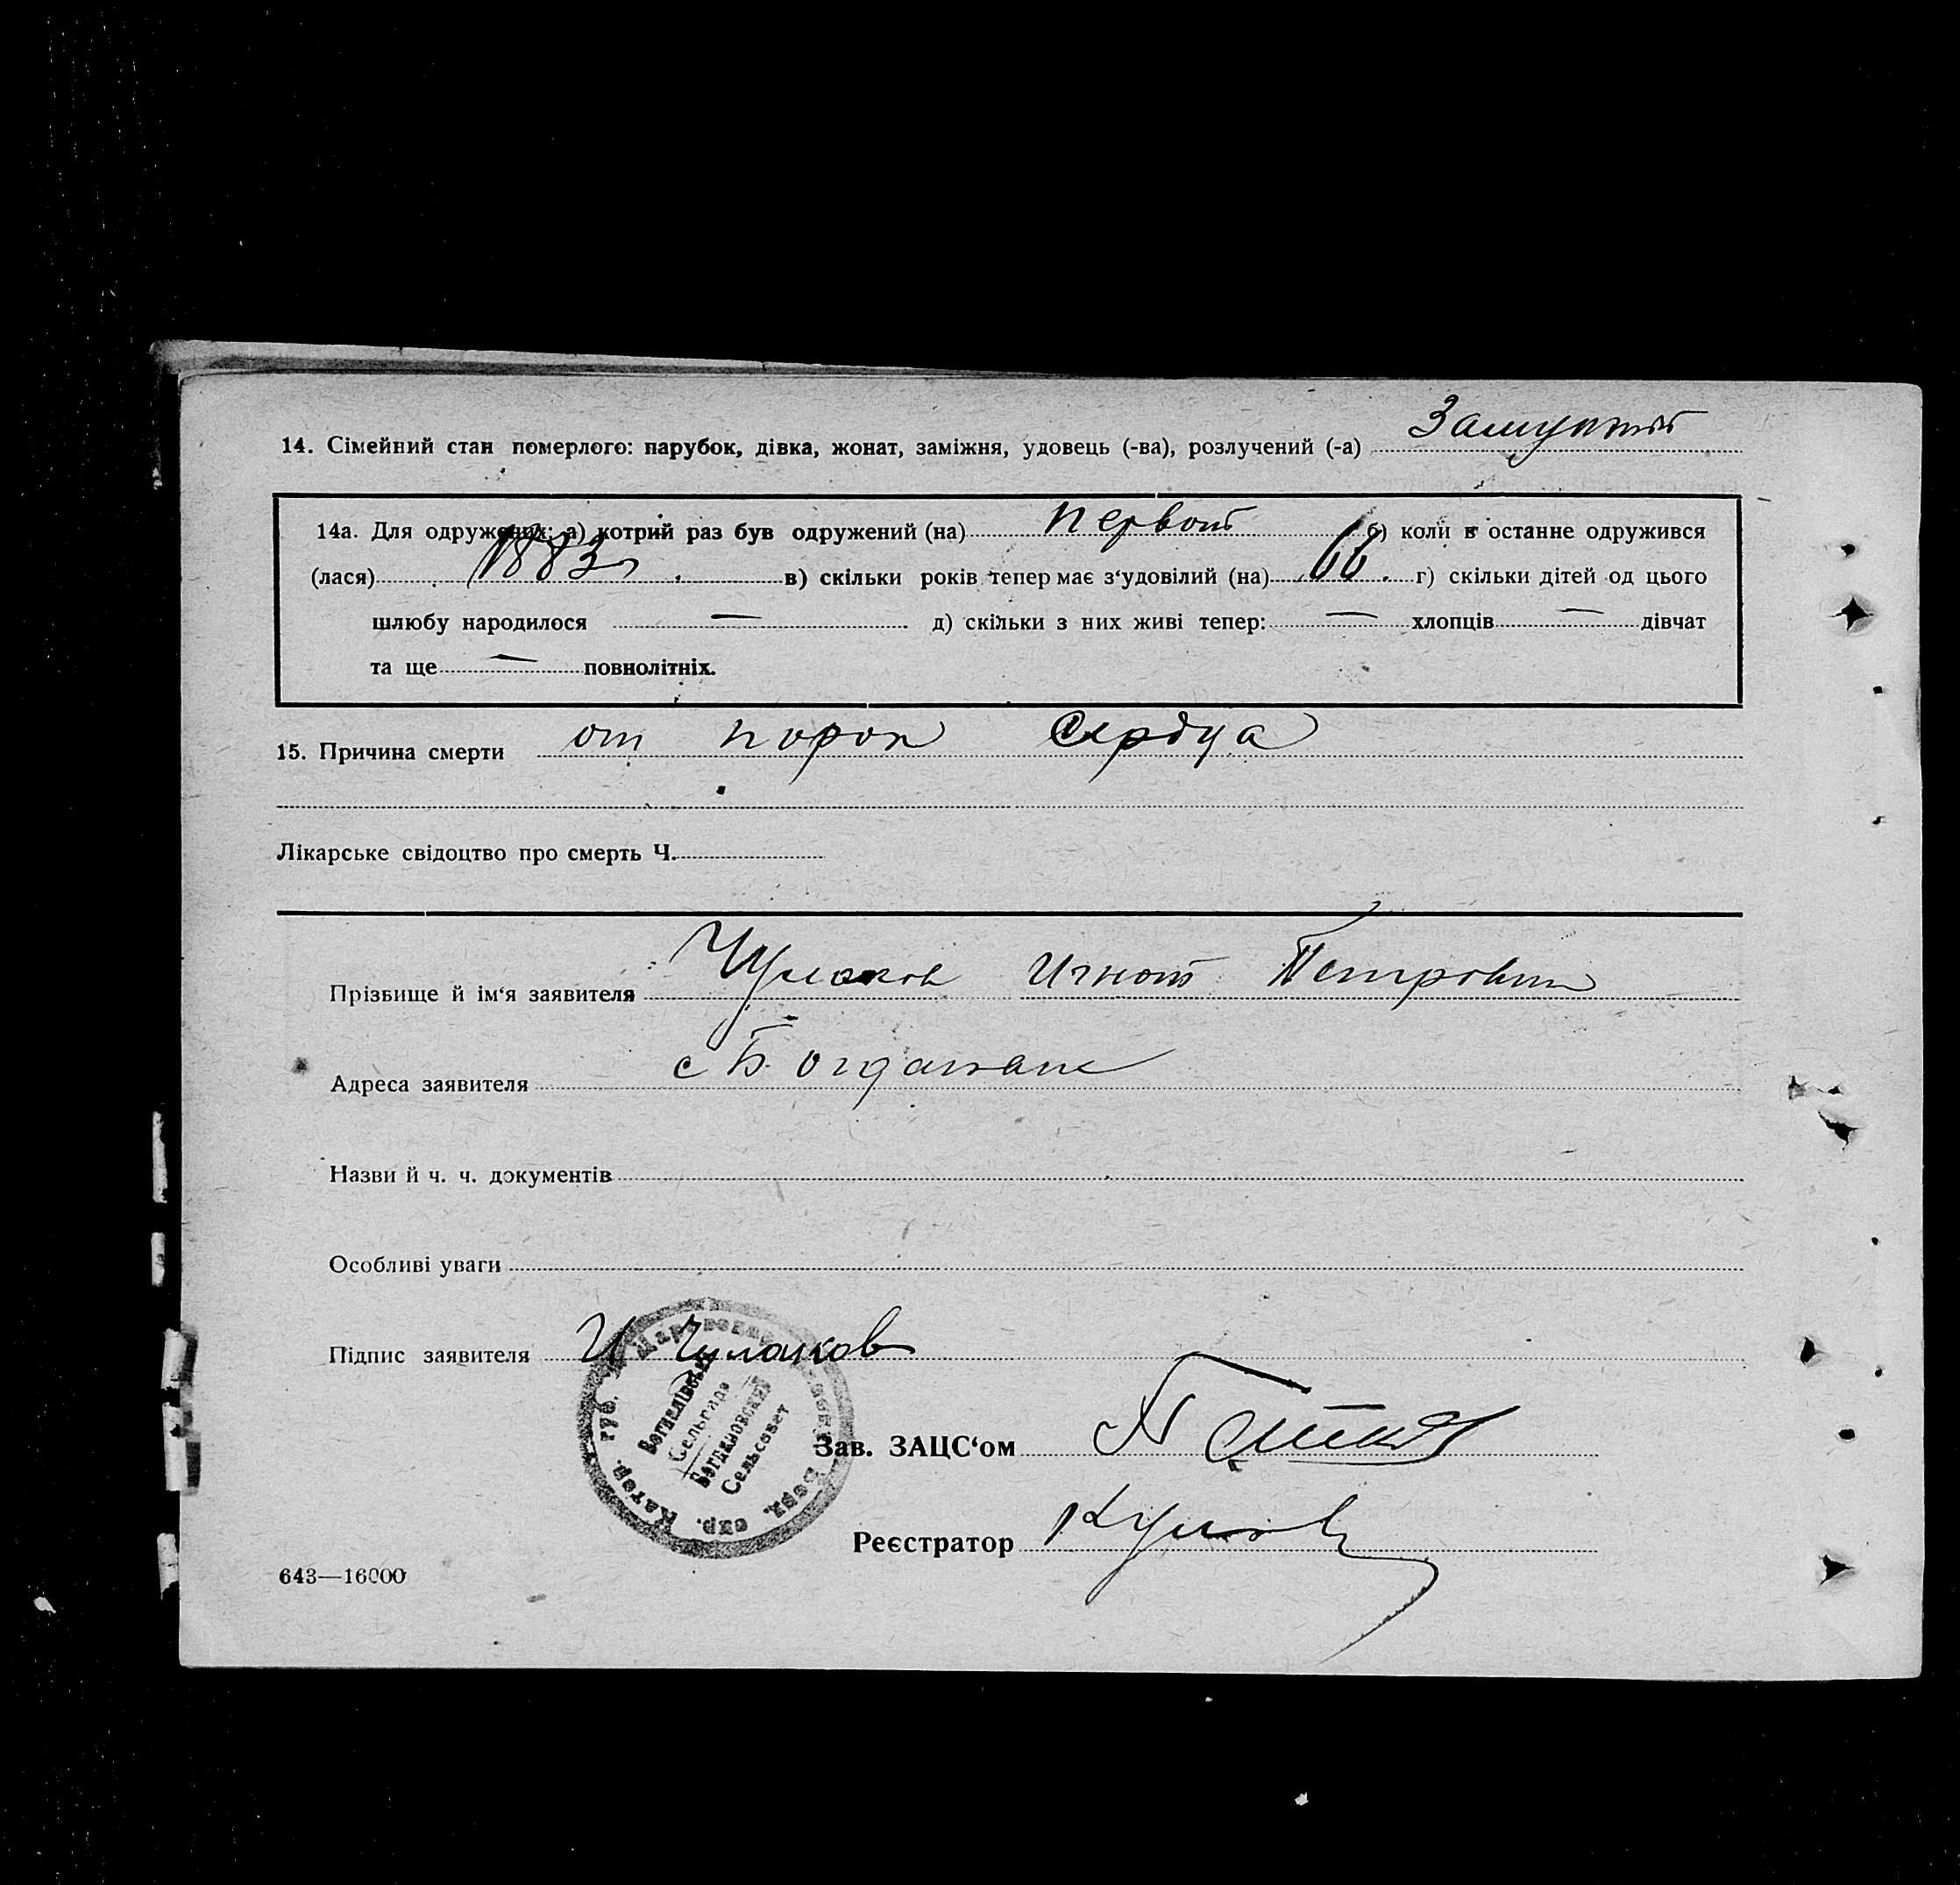 14. Сімейний стан померлого: парубок, дівка, жонат, заміжня, удовець (-ва), розлучений (-а)
14а. Для одружених: а) котрий раз був одружений (на) первой б) коли в останне одружився
(лася) 1883 в) скільки років тепер має з‘удовілий (на) 66. г) скільки дітей од цього
шлюбу народилося — д) скільки з них живі тепер: — хлопців — дівчат
та ще — повнолітніх.
15. Причина смерти от порок сердца
Лікарське свідоцтво про смерть Ч.
Прізвище й ім‘я заявителя Чумаков Игнат Петрович
Адреса заявителя с Богдановка
Назви й ч. ч. документів
Особливі уваги
Підпис заявителя И Чумаков
Катер. губ.
Сельрада
Богдановский
Сельсовет
Зав. ЗАЦС‘ом
Реєстратор
643—16000